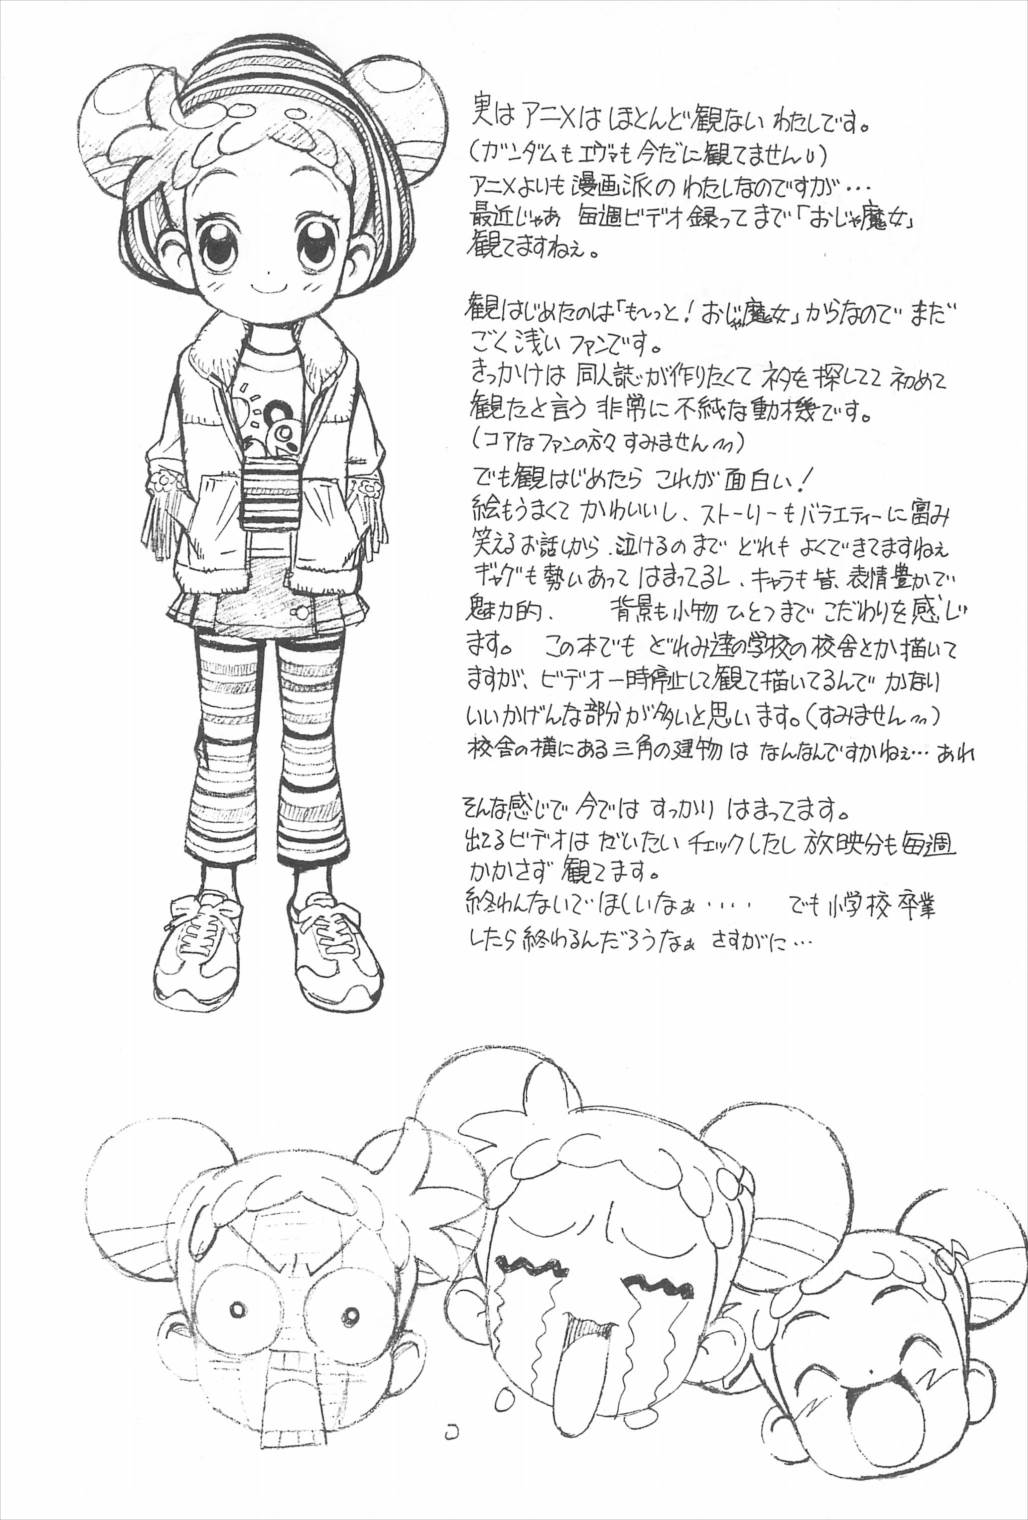 実は アニメは ほとんど観ない わたしです。
(ガンダムも エヴァも 今だに 観てません)
アニメよりも 漫画派の わたしなのですが…
最近じゃあ 毎週ビデオ録ってまで「おじゃ魔女」
観てますねぇ。
観はじめたのは「も〜っと！おじゃ魔女」からなので まだ
ごく浅い ファンです。
きっかけは 同人誌が作りたくて ネタを 探してて 初めて
観たと言う 非常に 不純な動機です。
(コアなファンの方々 すみません)
でも観はじめたら これが 面白い！
絵もうまくて かわいいし、ストーリーもバラエティーに富み
笑えるお話しから、泣けるのまで どれも よくできてますねぇ
ギャグも 勢いあって はまってるし、キャラも皆、表情豊かで
魅力的、 背景も小物 ひとつまで こだわりを感じ
ます。 この本でも どれみ達の学校の 校舎とか描いて
ますが、ビデオ一時停止して観て描いてるんで かなり
いいかげんな部分が多いと思います。(すみません)
校舎の横にある三角の建物は なんなんですかねぇ… あれ
そんな感じで 今では すっかり はまってます。
出てるビデオは だいたい チェックしたし 放映分も毎週
かかさず 観てます。
終わんないで ほしいなぁ‥‥ でも 小学校 卒業
したら終わるんだろうなぁ さすがに…